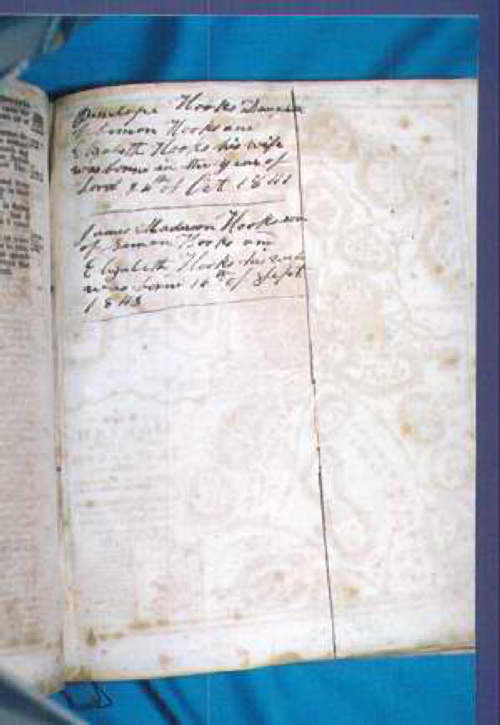 Penelope Hooks Daughter
of Simon Hooks and
Elizabeth Hooks his wife
was borne in the year of
Lord 24 of Oct 1841
James Madison Hooks son
of Simon Hooks and
Elizabeth Hooks his wife
was born 16th of Sept
1843